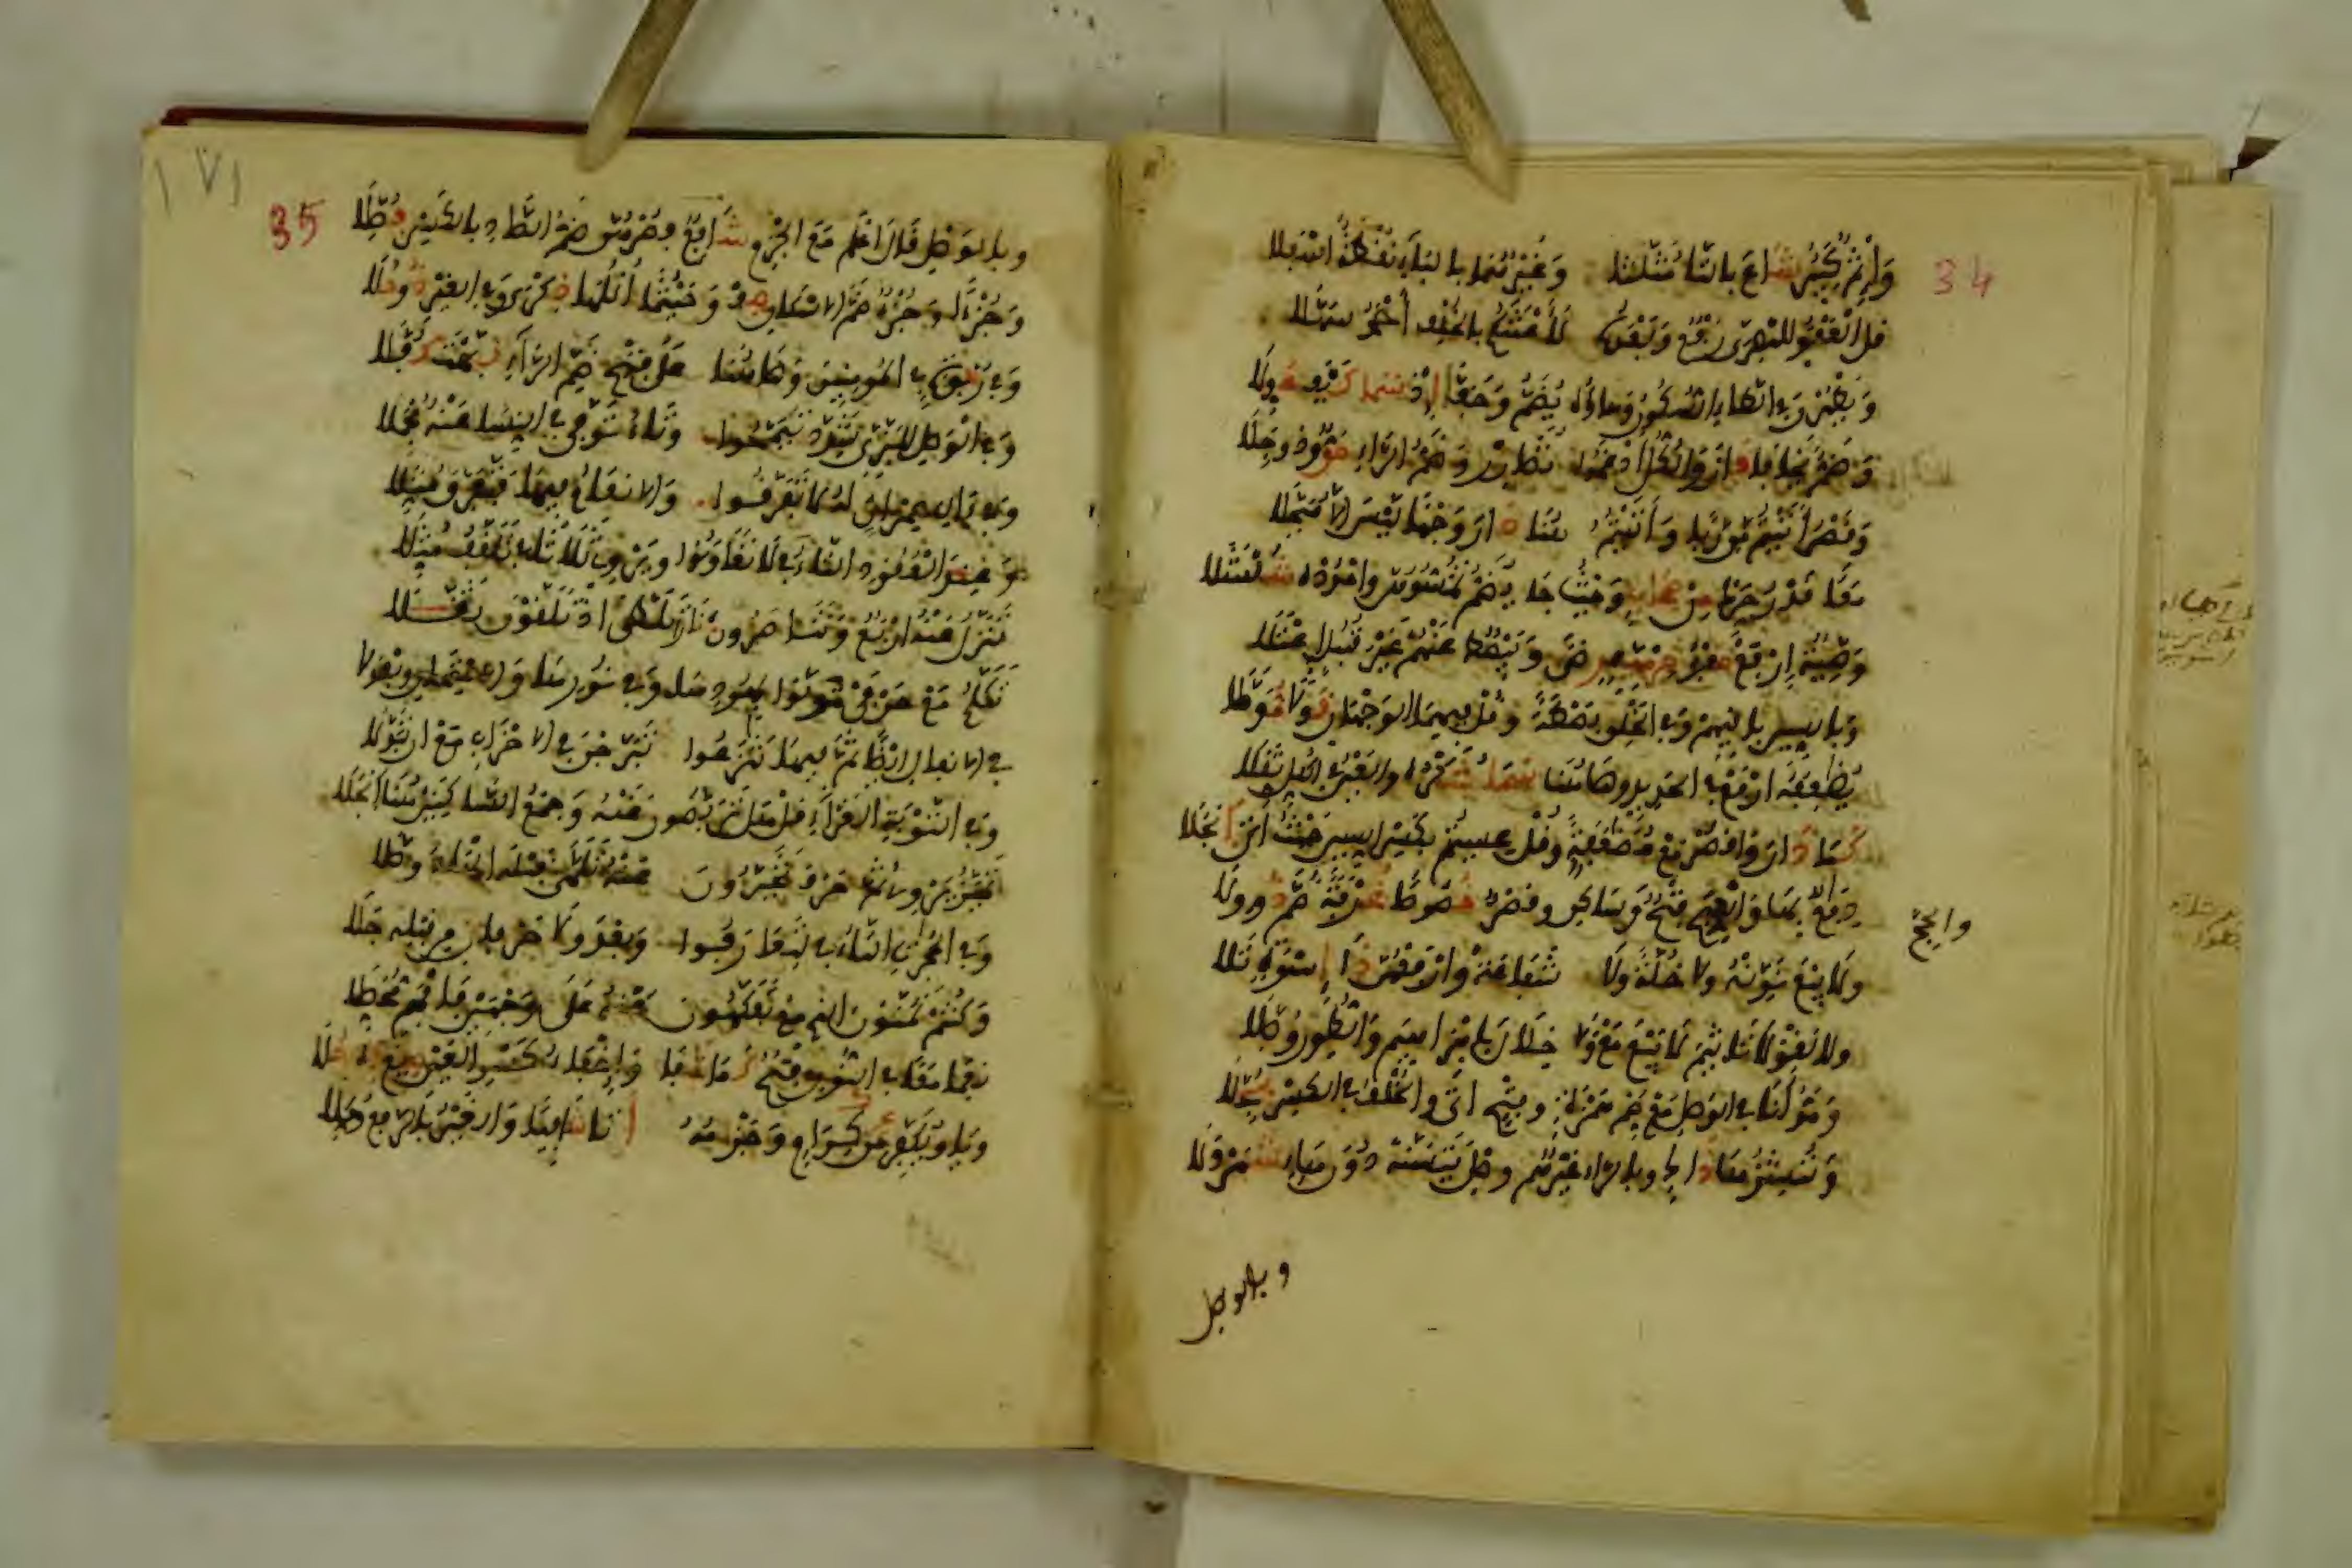 34
وَإِثْمٌ كَبِيرٌ شَاعَ بِالثَّا مُثَلَّثًا وَغَيْرُهُمَا بِالْبَاءِ نُقْطَةٌ اسْفَلَا
قُلِ الْعَفْوُ لِلْبَصْرِي رَفْعٌ وَبَعْدَهُ لَأَعْنَتَكُمْ بِالْخُلْفِ أَحْمَدُ سَهَّلَا
وَيَطْهُرْنَ فِي الطَّاءِ السُّكُونُ وَهَاؤُهُ يُضَمُّ وَخَفَّا إِذْ سَمَا كَيْفَ عُوِّلَا
وَضَمُّ يَخَافَا فَازَ وَالْكُلُّ أَدْغَمُوا تُضَارَرْ وَضَمُّ الرَّاءِ حَقٌّ وَذُو جِلَا
وَقَصْرُ أَتَيْتُمْ مِن رِّبًا وَأَتَيْتُمُ هُنَا دَارَ وَجْهًا لَيْسَ إِلَّا مُبَجَّلَا
مَعًا قَدْرُ حَرِّكْ مِنْ صِحَابٍ وَحَيْثُ جَا يُضَمُّ تَمَسُّوهُنَّ وَامْدُدْهُ شُلْشُلَا
وَصِيَّةٌ ارْفَعْ صَفْوُ حِرْمِيِّهِ رِضًى وَيَبْصُطُ عَنْهُمْ غَيْرَ قُنْبُلٍ اعْتَلَا
وَبِالسِّينِ بَاقِيهِمْ وَفِي الْخَلْقِ بَصْطَةً وَقُلْ فِيهِمَا الْوَجْهَانِ قَوْلًا مُوَصَّلَا
يُضَاعِفَهُ ارْفَعْ فِي الْحَدِيدِ وَهَاهُنَا سَمَا شُكْرُهُ وَالْعَيْنُ فِي الْكُلِّ ثُقِّلَا
كَمَا دَارَ وَاقْصُرْ مَعْ مُضَعَّفَةٍ وَقُلْ عَسِيتُمْ بِكَسْرِ السِّينِ حَيْثُ أَتَى انْجَلَا
دِفَاعُ بِهَا وَالْحَجِّ فَتْحٌ وَسَاكِنٌ وَقَصْرٌ خُصُوصًا غُرْفَةً ضَمَّ ذُو وِلَا
والحج
وَلَا بَيْعَ نَوِّنْهُ وَلَا خُلَّةٌ وَلَا شَفَاعَةَ وَارْفَعْهُنَّ ذَا إِسْوَةٍ تَلَا
وَلَا لَغْوَ لَا تَأْثِيمَ لَا بَيْعَ مَعْ وَلَا خِلَالَ بِإِبْرَاهِيمَ وَالطُّورِ وُصِّلَا
وَمَدُّ أَنَا فِي الْوَصْلِ مَعْ ضَمِّ هَمْزَةٍ وَفَتْحٍ أَتَى وَالْخُلْفُ فِي الْكَسْرِ بُجِّلَا
وَنُنْشِزُهَا ذَاكٍ وَبِالرَّاءِ غَيْرُهُمْ وَصِلْ يَتَسَنَّهْ دُونَ هَاءٍ شَمَرْدَلَا
وبالوصل
١٧١
35
وَبِالْوَصْلِ قَالَ اعْلَمْ مَعَ الْجَزْمِ شَافِعٌ فَصُرْهُنَّ ضَمُّ الصَّادِ بِالْكَسْرِ فُصِّلَا
وَجُزْءًا وَجُزْءٌ ضَمَّ الِاسْكَانَ صِفْ وَحَيْثُمَا أُكْلُهَا ذِكْرًا وَفِي الْغَيْرِ ذُو حُلَا
وَفِي رَبْوَةٍ فِي الْمُومِنِينَ وَهَاهُنَا عَلَى فَتْحِ ضَمِّ الرَّاءِ نَبَّهْتُ كُفَّلَا
وَفِي الْوَصْلِ لِلْبَزِّيِّ شَدِّدْ تَيَمَّمُوا وَتَاءَ تَوَفَّى فِي النِّسَا عَنْهُ مُجْمِلَا
وَفِي آلِ عِمْرَانٍ لَهُ لَا تَفَرَّقُوا وَالانْعَامُ فِيهَا فَتَفَرَّقَ مُثِّلَا
وَعِنْدَ الْعُقُودِ التَّاءُ فِي لَا تَعَاوَنُوا وَيَرْوِي ثَلَاثًا فِي تَلَقَّفُ مُثَّلَا
تَنَزَّلُ عَنْهُ أَرْبَعٌ وَتَنَاصَرُونَ نَارًا تَلَظَّى إِذْ تَلَقَّوْنَ ثُقِّلَا
تَكَلَّمُ مَعْ حَرْفَيْ تَوَلَّوْا بِهُودِهَا وَفِي نُورِهَا وَالِامْتِحَانِ وَبَعْدَ لَا
فِي الانْفَالِ أَيْضًا ثُمَّ فِيهَا تَنَازَعُوا تَبَرَّجْنَ فِي الاحْزَابِ مَعْ أَنْ تَبَدَّلَا
وَفِي التَّوْبَةِ الْغَرَّاءِ قُلْ هَلْ تَرَبَّصُونَ عَنْهُ وَجَمْعُ السَّاكِنَيْنِ هُنَا انْجَلَا
تَمَيَّزُ يَرْوِي ثُمَّ حَرْفَ تَخَيَّرُونَ عَنْهُ تَلَهَّى قَبْلَهُ الْهَاءَ وَصَّلَا
وَفِي الْحُجُرَاتِ التَّاءُ فِي لِتَعَارَفُوا وَبَعْدَ وَلَا حَرْفَانِ مِنْ قَبْلِهِ جَلَا
وَكُنْتُمْ تَمَنَّوْنَ الَّذِي مَعْ تَفَكَّهُونَ عَنْهُ عَلَى وَجْهَيْنِ فَافْهَمْ مُحَصِّلَا
نِعِمَّا مَعًا فِي النُّونِ فَتْحٌ كَمَا شَفَا وَإِخْفَاءُ كَسْرِ الْعَيْنِ صِيغَ بِهِ حُلَا
وَيَا وَيُكَفِّرْ عَنْ كِرَامٍ وَجَزْمُهُ أَتَى شَافِيًا وَالْغَيْرُ بِالرَّفْعِ وُكِّلَا